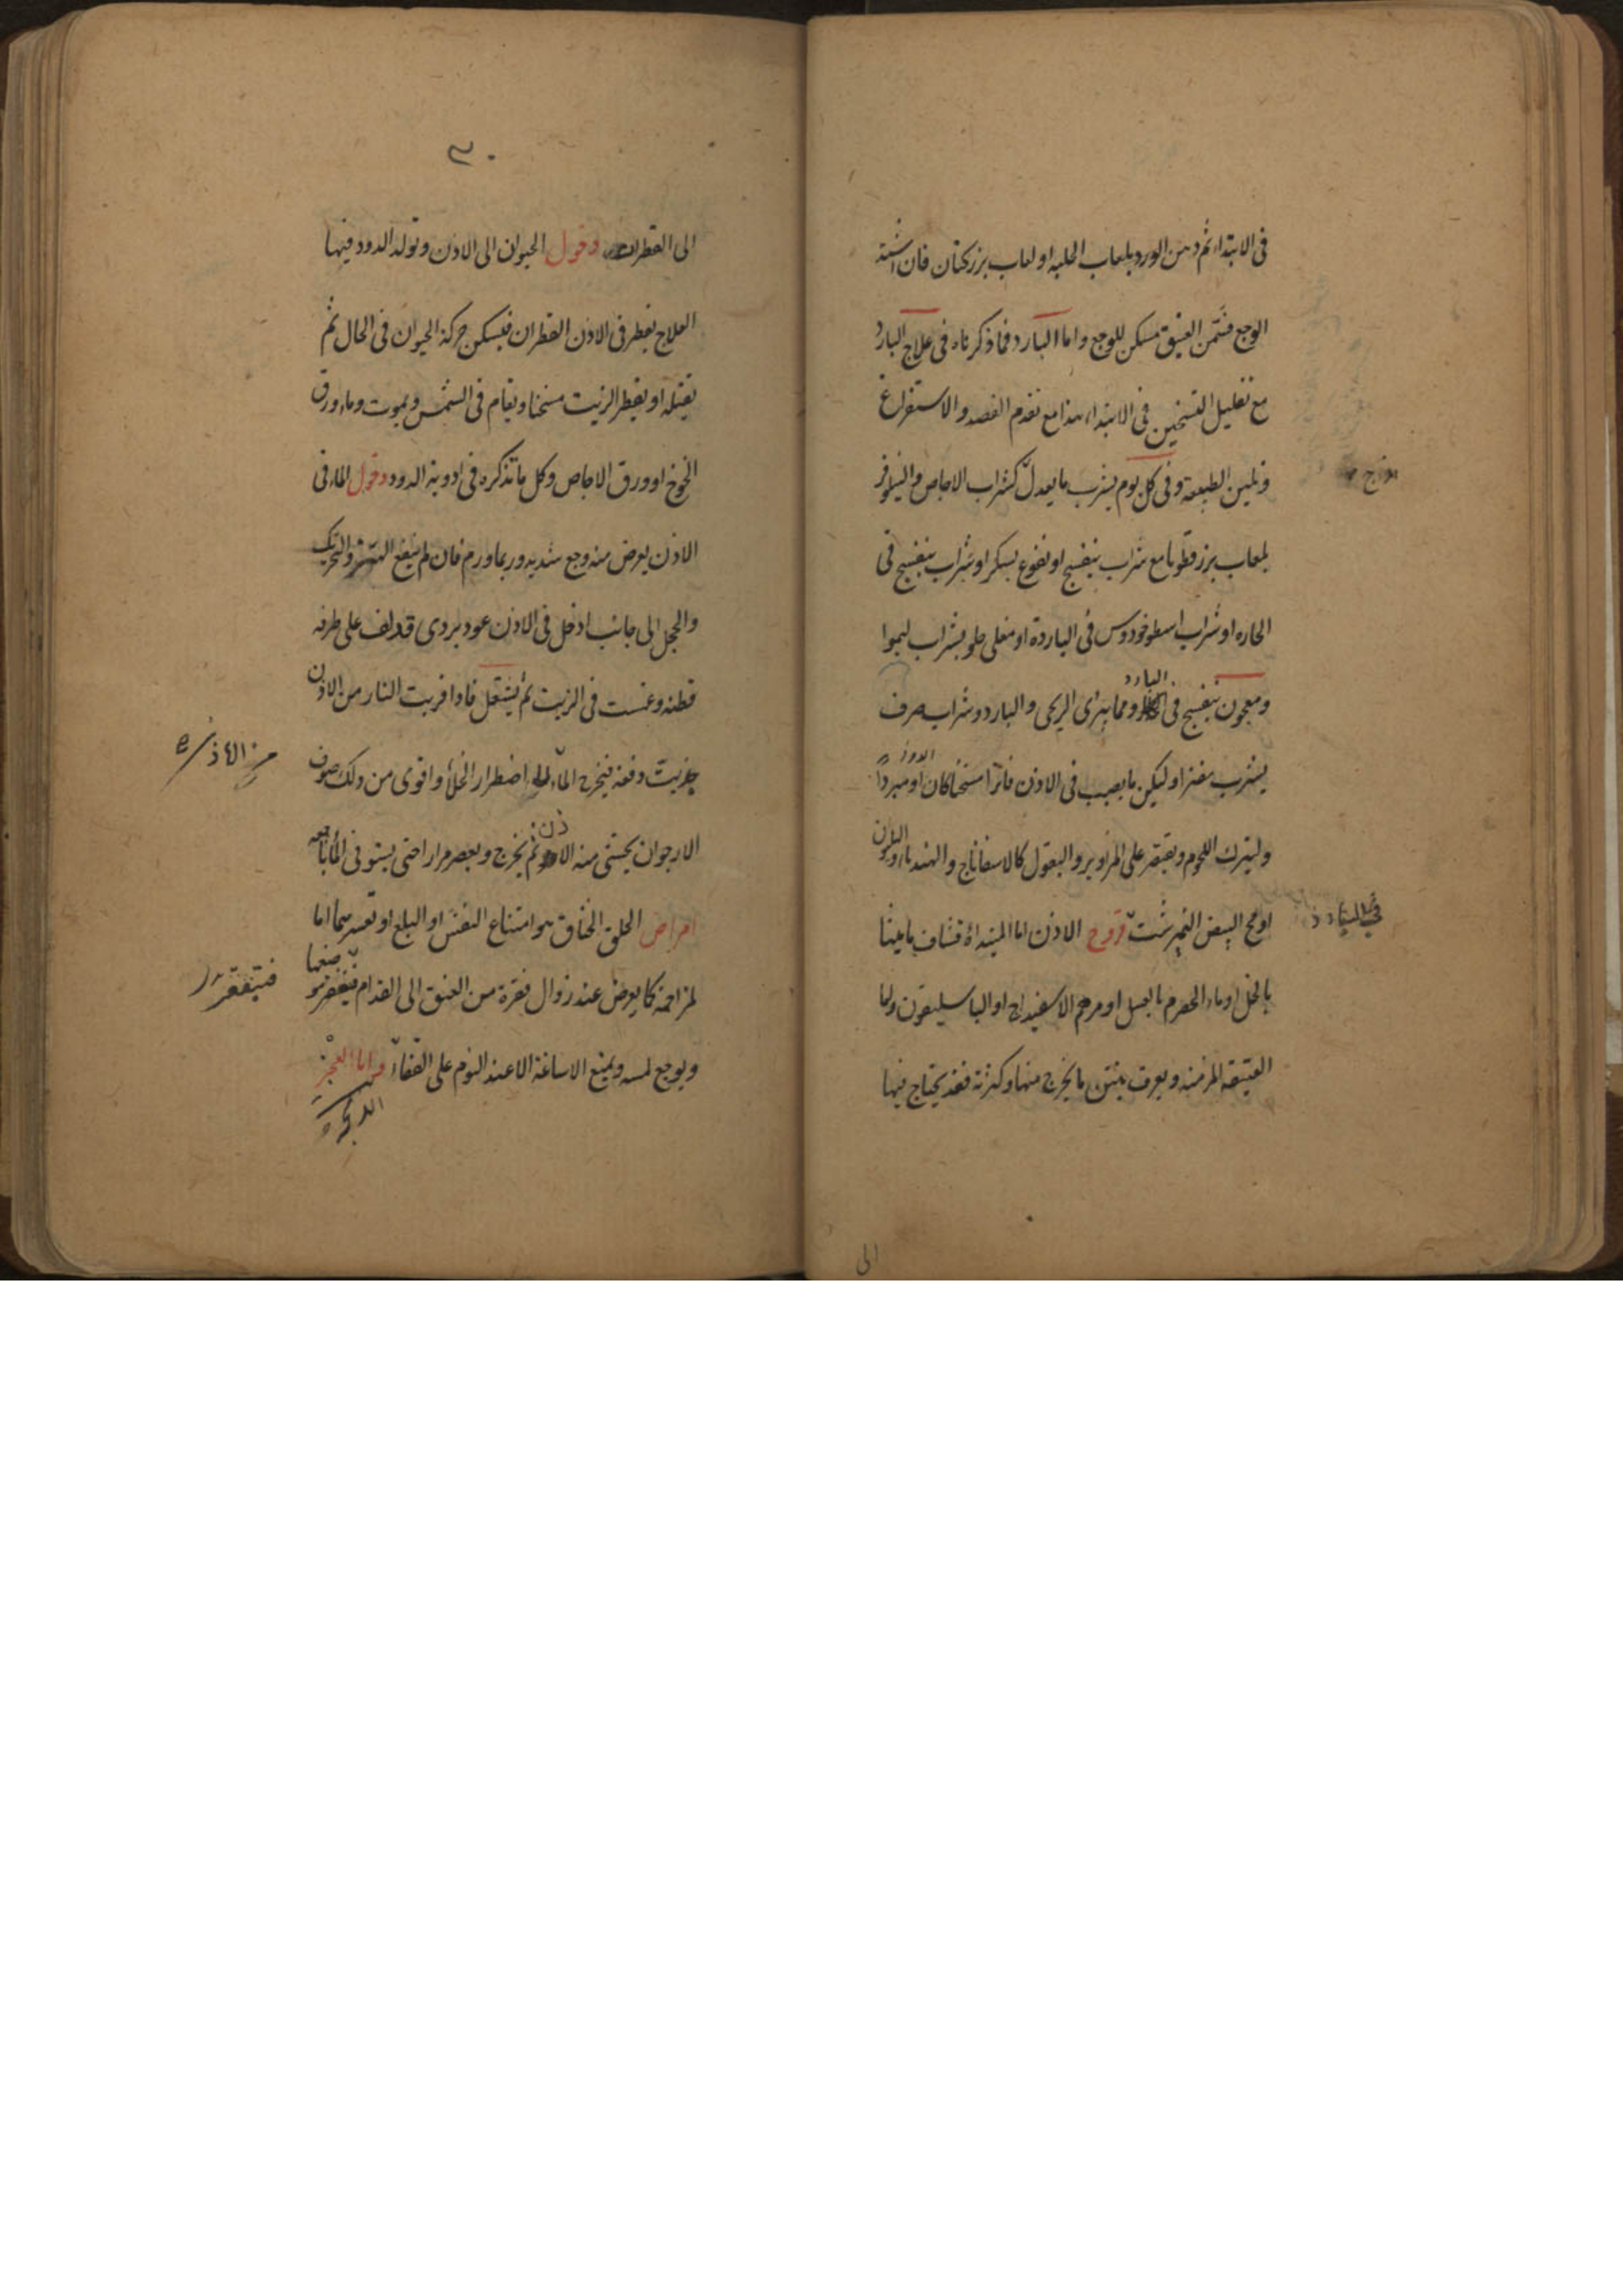 فى الابتداء ثم دهن الورد بلعاب الحلبه او لعاب بزركتان فان اشتد
الوجع فسمن العتيق مسكن للوجع واما البارد فما ذكرناه فى علاج البارد
مع تقليل التسخين فى الابتداء هذا مع تقدم الفصد والاستفراغ
وتليين الطبيعة وفى كل يوم يشرب ما يعدل كشراب الاجاص والنيلوفر
بلعاب بزر قطونا مع شراب بنفسج او نقوع بسكر او شراب بنفسج فى
الحاره او شراب اسطوخودوس فى الباردة او مغلى حلو بشراب ليموا
البارد
ومعجون بنفسج فى ومما يبرى الريحى والبارد وشراب صرف
يشرب مفترا وليكن ما يصب فى الاذن فاترا مسخنا كان او مبردا
وليترك اللحوم ويقتصر على المزاوير والبقول كالاسفاناخ والهندبا
او مح البيض النيمرشت قروح الاذن اما المبتداة فشاف ماميثا
بالخل او ماء الحصرم بالعسل او مرهم الاسفيداج او الباسليقون واما
العتيقه المزمنه ويعرف بنتن ما يخرج منها وكثرته فقد يحتاج فيها
الى
٣٠
الى القطران دخول الحيوان الى الاذن وتولد الدود فيها
العلاج يقطر فى الاذن القطران فيسكن حركة الحيوان فى الحال ثم
يقتله او يقطر الزيت مسخنا ويقام فى الشمس ويموت وماء ورق
الخوخ او ورق الاجاص وكل ما تذكره فى ادوية الدود دخول الماء فى
الاذن يعرض منه وجع شديد وربما ورم فان لم ينفع الهز والتحريك
والحجل الى جانب ادخل فى الاذن عود بردى قد لف على طرفه
قطنه وغمست فى الزيت ثم يشتعل فاذا قربت النار من الاذن
جذبت دفعة فيخرج الماء اضطرار الخلأ واقوى من ذلك صوف
من الاذن
الارجوان يحشى منه الاذن ثم يخرج ويعصر مرارا حتى يستوفى الماء
امراض الحلق الخناق هو امتناع النفس او البلع او تعسرهما اما
لمزاحمة كما يعرض عند زوال فقرة من العنق الى القدام فيتقعر
فيتقعر
ويوجع لمسه ويمنع الاساغة الا عند النوم على القفاء واما العجز